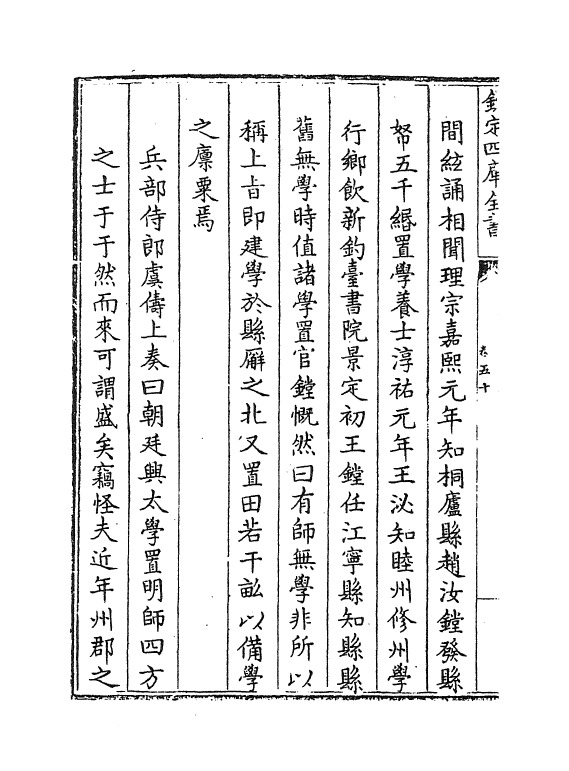 欽定四庫全書
卷五十
間絃誦相聞理宗嘉熙元年知桐廬縣趙汝鏜發縣
帑五千緡置學養士淳祐元年王泌知睦州修州學
行鄉飲新釣臺書院景定初王鏜任江寧縣知縣縣
舊無學時值諸學置官鏜慨然曰有師無學非所以
稱上旨即建學於縣廨之北又置田若干畝以備學
之廪粟焉
兵部侍郎虞儔上奏曰朝廷興太學置明師四方
之士于于然而來可謂盛矣竊怪夫近年州郡之